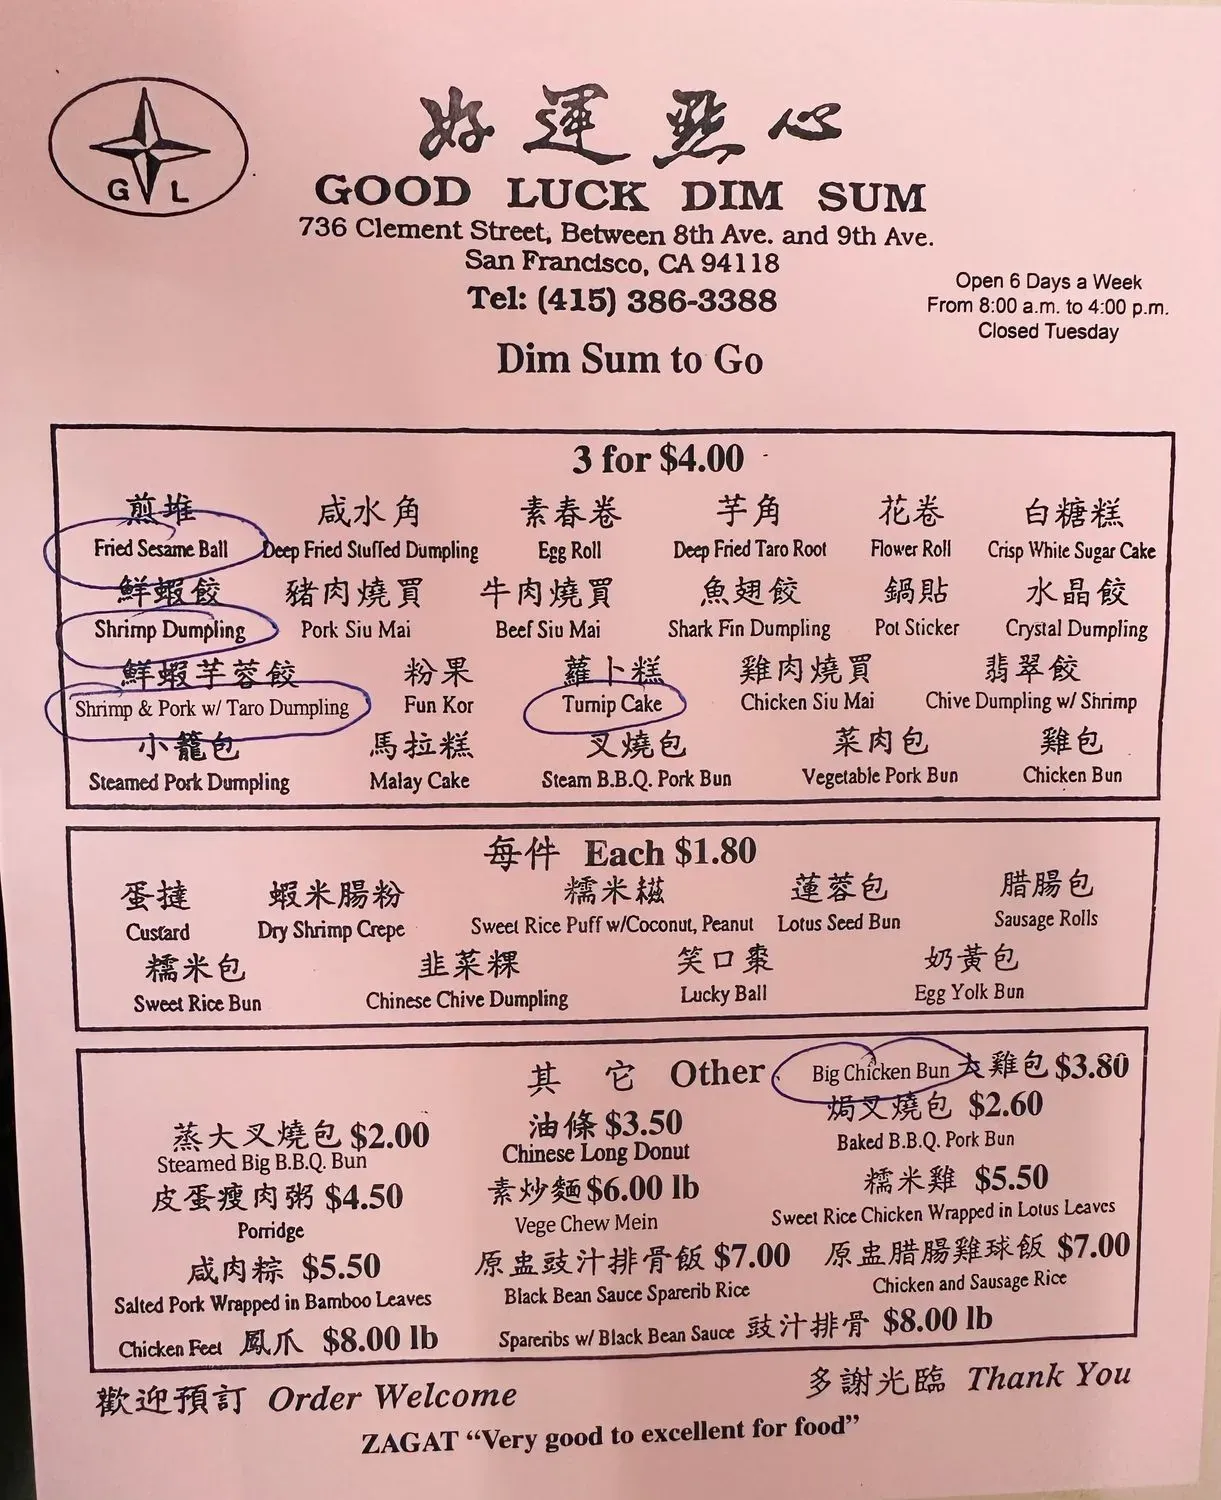 G L
好運點心
GOOD LUCK DIM SUM
736 Clement Street, Between 8th Ave. and 9th Ave.
San Francisco, CA 94118
Tel: (415) 386-3388
Open 6 Days a Week
From 8:00 a.m. to 4:00 p.m.
Closed Tuesday
Dim Sum to Go
3 for $4.00
煎堆 咸水角 素春卷 芋角 花卷 白糖糕
Fried Sesame Ball Deep Fried Stuffed Dumpling Egg Roll Deep Fried Taro Root Flower Roll Crisp White Sugar Cake
鮮蝦餃 豬肉燒買 牛肉燒買 魚翅餃 鍋貼 水晶餃
Shrimp Dumpling Pork Siu Mai Beef Siu Mai Shark Fin Dumpling Pot Sticker Crystal Dumpling
鮮蝦芋蓉餃 粉果 蘿卜糕 雞肉燒買 翡翠餃
Shrimp & Pork w/ Taro Dumpling Fun Kor Turnip Cake Chicken Siu Mai Chive Dumpling w/ Shrimp
小籠包 馬拉糕 叉燒包 菜肉包 雞包
Steamed Pork Dumpling Malay Cake Steam B.B.Q. Pork Bun Vegetable Pork Bun Chicken Bun
每件 Each $1.80
蛋撻 蝦米腸粉 糯米糍 蓮蓉包 腊腸包
Custard Dry Shrimp Crepe Sweet Rice Puff w/Coconut, Peanut Lotus Seed Bun Sausage Rolls
糯米包 韭菜粿 笑口棗 奶黃包
Sweet Rice Bun Chinese Chive Dumpling Lucky Ball Egg Yolk Bun
其它 Other Big Chicken Bun 大雞包 $3.80
蒸大叉燒包 $2.00 油條 $3.50 焗叉燒包 $2.60
Steamed Big B.B.Q. Bun Chinese Long Donut Baked B.B.Q. Pork Bun
皮蛋瘦肉粥 $4.50 素炒麵 $6.00 lb 糯米雞 $5.50
Porridge Vege Chew Mein Sweet Rice Chicken Wrapped in Lotus Leaves
咸肉粽 $5.50 原盅豉汁排骨飯 $7.00 原盅腊腸雞球飯 $7.00
Salted Pork Wrapped in Bamboo Leaves Black Bean Sauce Sparerib Rice Chicken and Sausage Rice
Chicken Feet 鳳爪 $8.00 lb Spareribs w/ Black Bean Sauce 豉汁排骨 $8.00 lb
歡迎預訂 Order Welcome 多謝光臨 Thank You
ZAGAT “Very good to excellent for food”